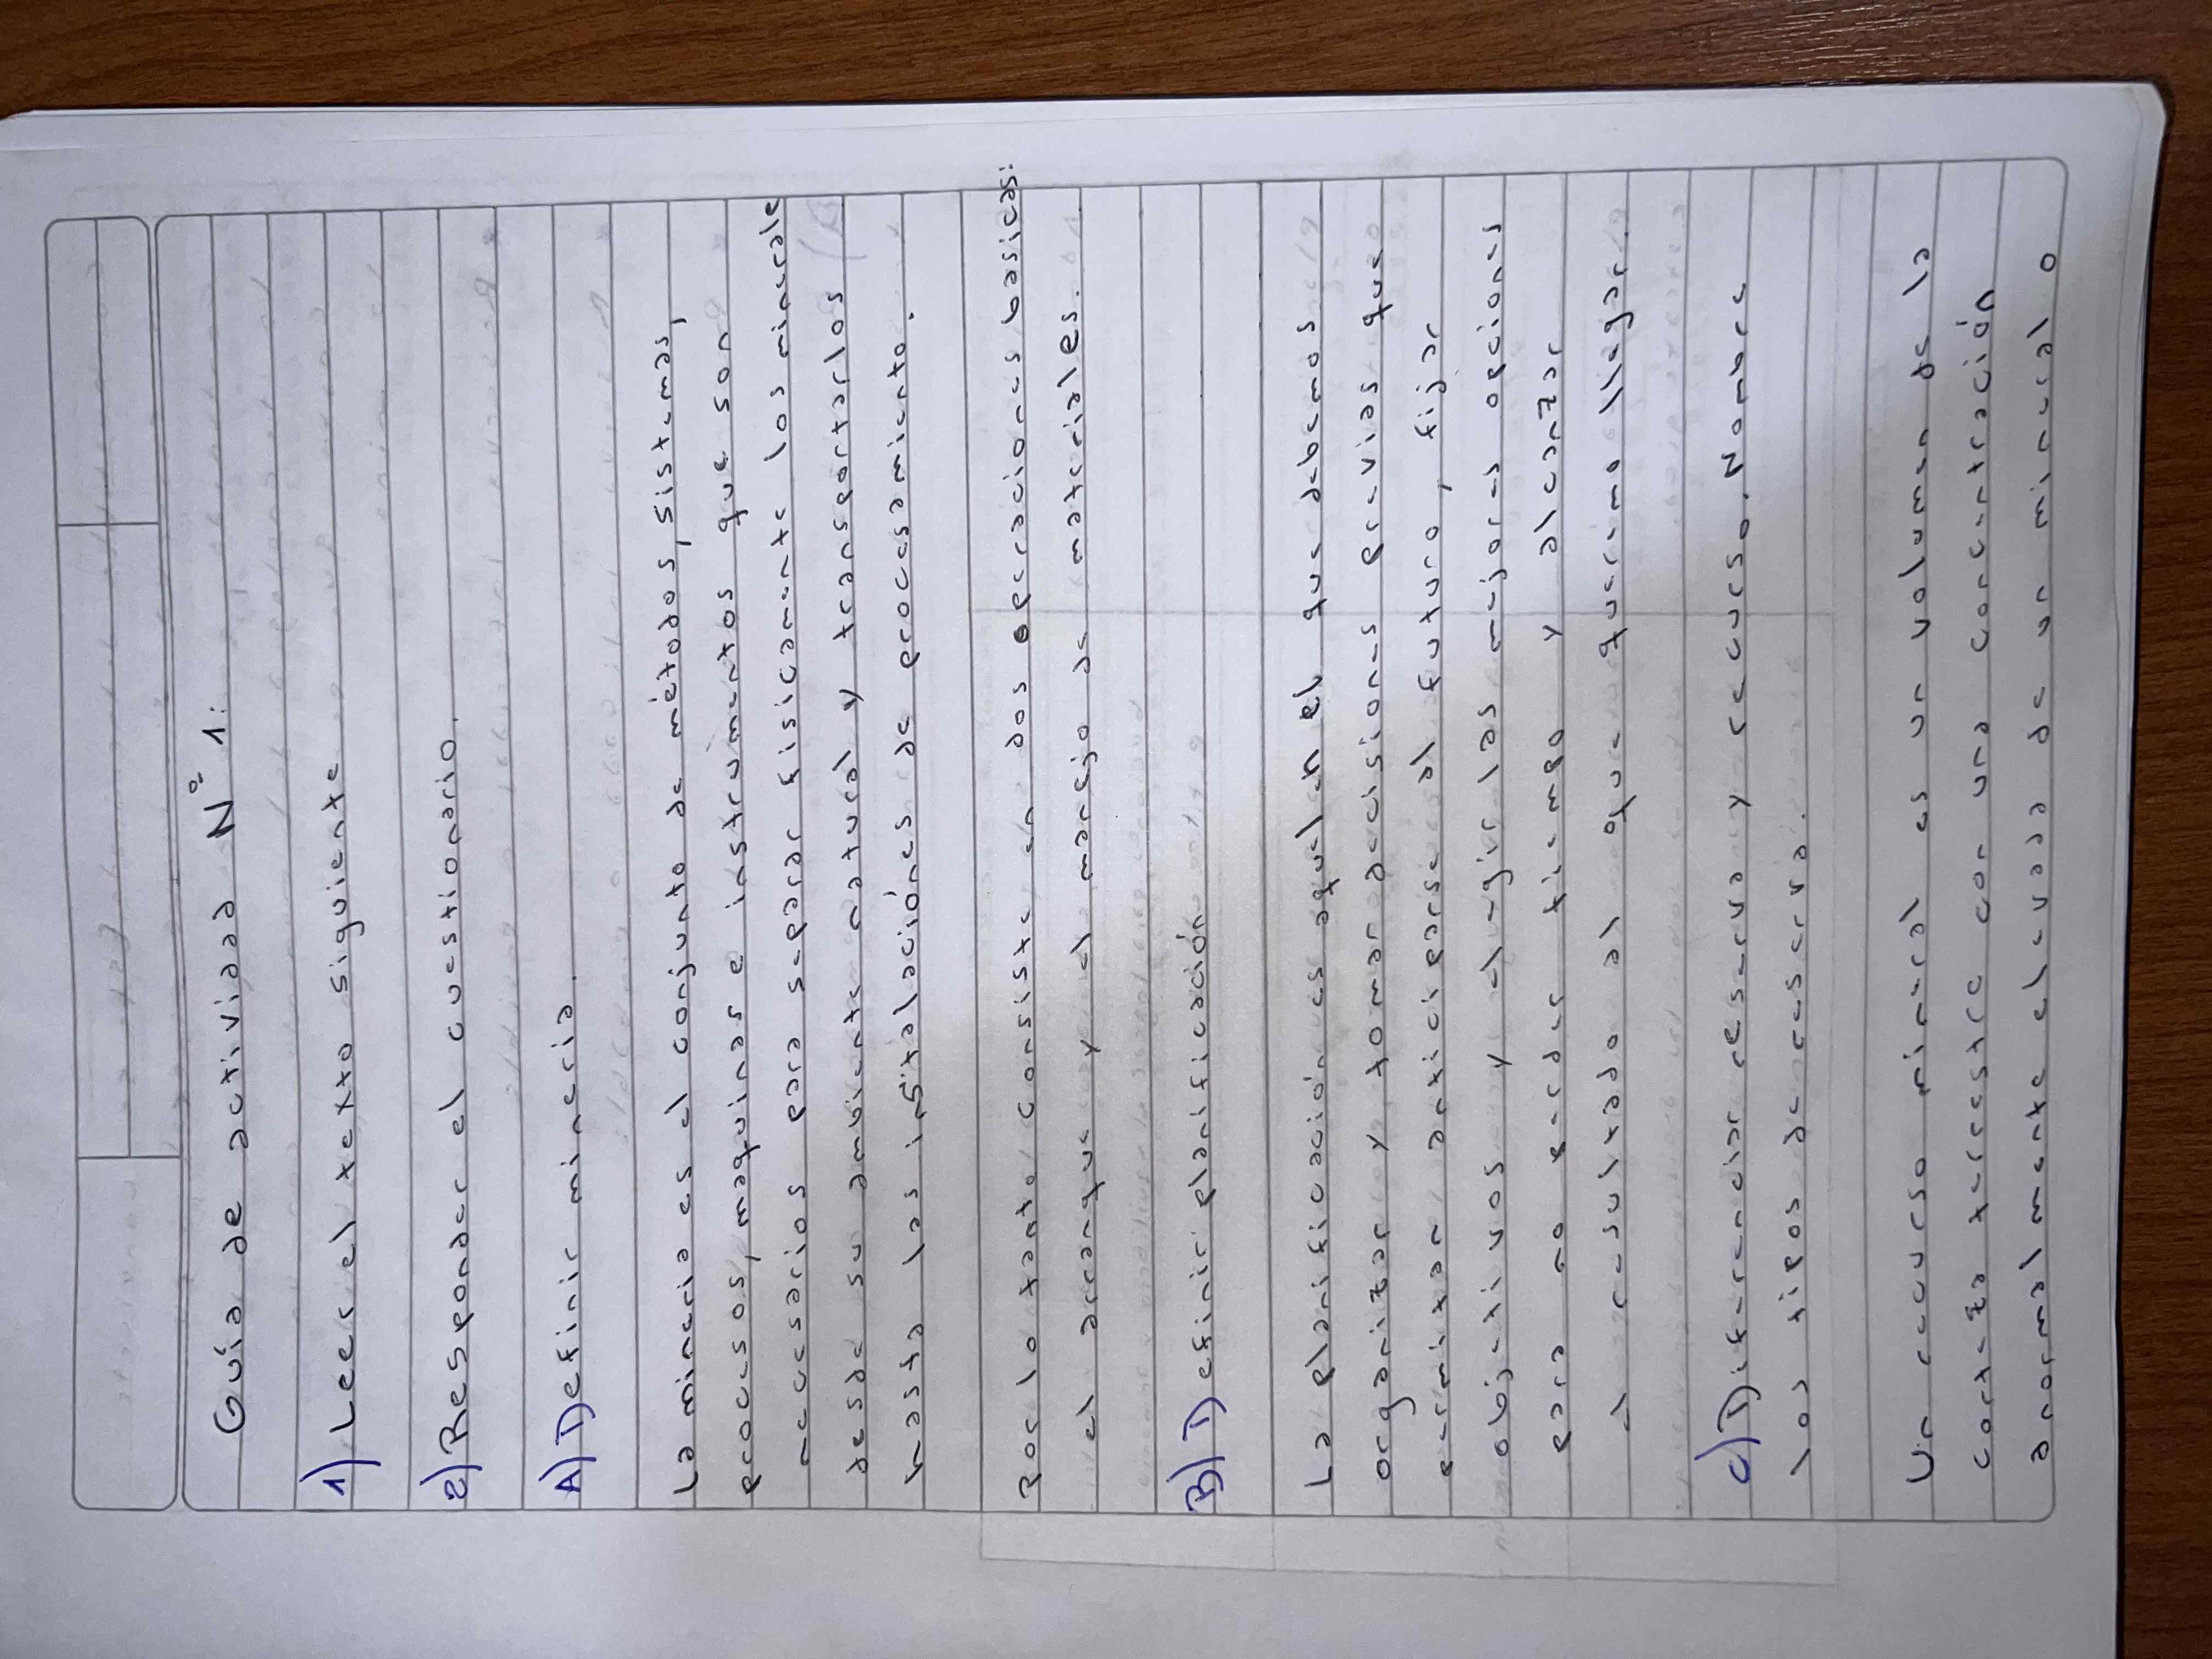 Guía de actividad N° 1:
1) Leer el texto siguiente
2) Responder el cuestionario.
A) Definir mineria.
La mineria es el conjunto de métodos, sistemas,
procesos, maquinas e instrumentos que son
necesarios para separar fisicamente los minerale
desde su ambiente natural y transportarlos
hasta las instalaciónes de procesamiento.
Por lo tanto consiste en dos operaciones basicas:
el arranque y el manejo de materiales.
B) Definir planificación
La planificación es aquel en el que debemos
organizar y tomar decisiones previas que
permitan anticiparse al futuro, fijar
objetivos y elegir las mejores opciones
para no perder tiempo y alcanzar
el resultado al que querimo llegar.
C) Diferenciar reserva y recurso. Nombre
los tipos de reserva.
Un recurso mineral es un volumen de la
corteza terrestre con una concentración
anormalmente elevada de un mineral o